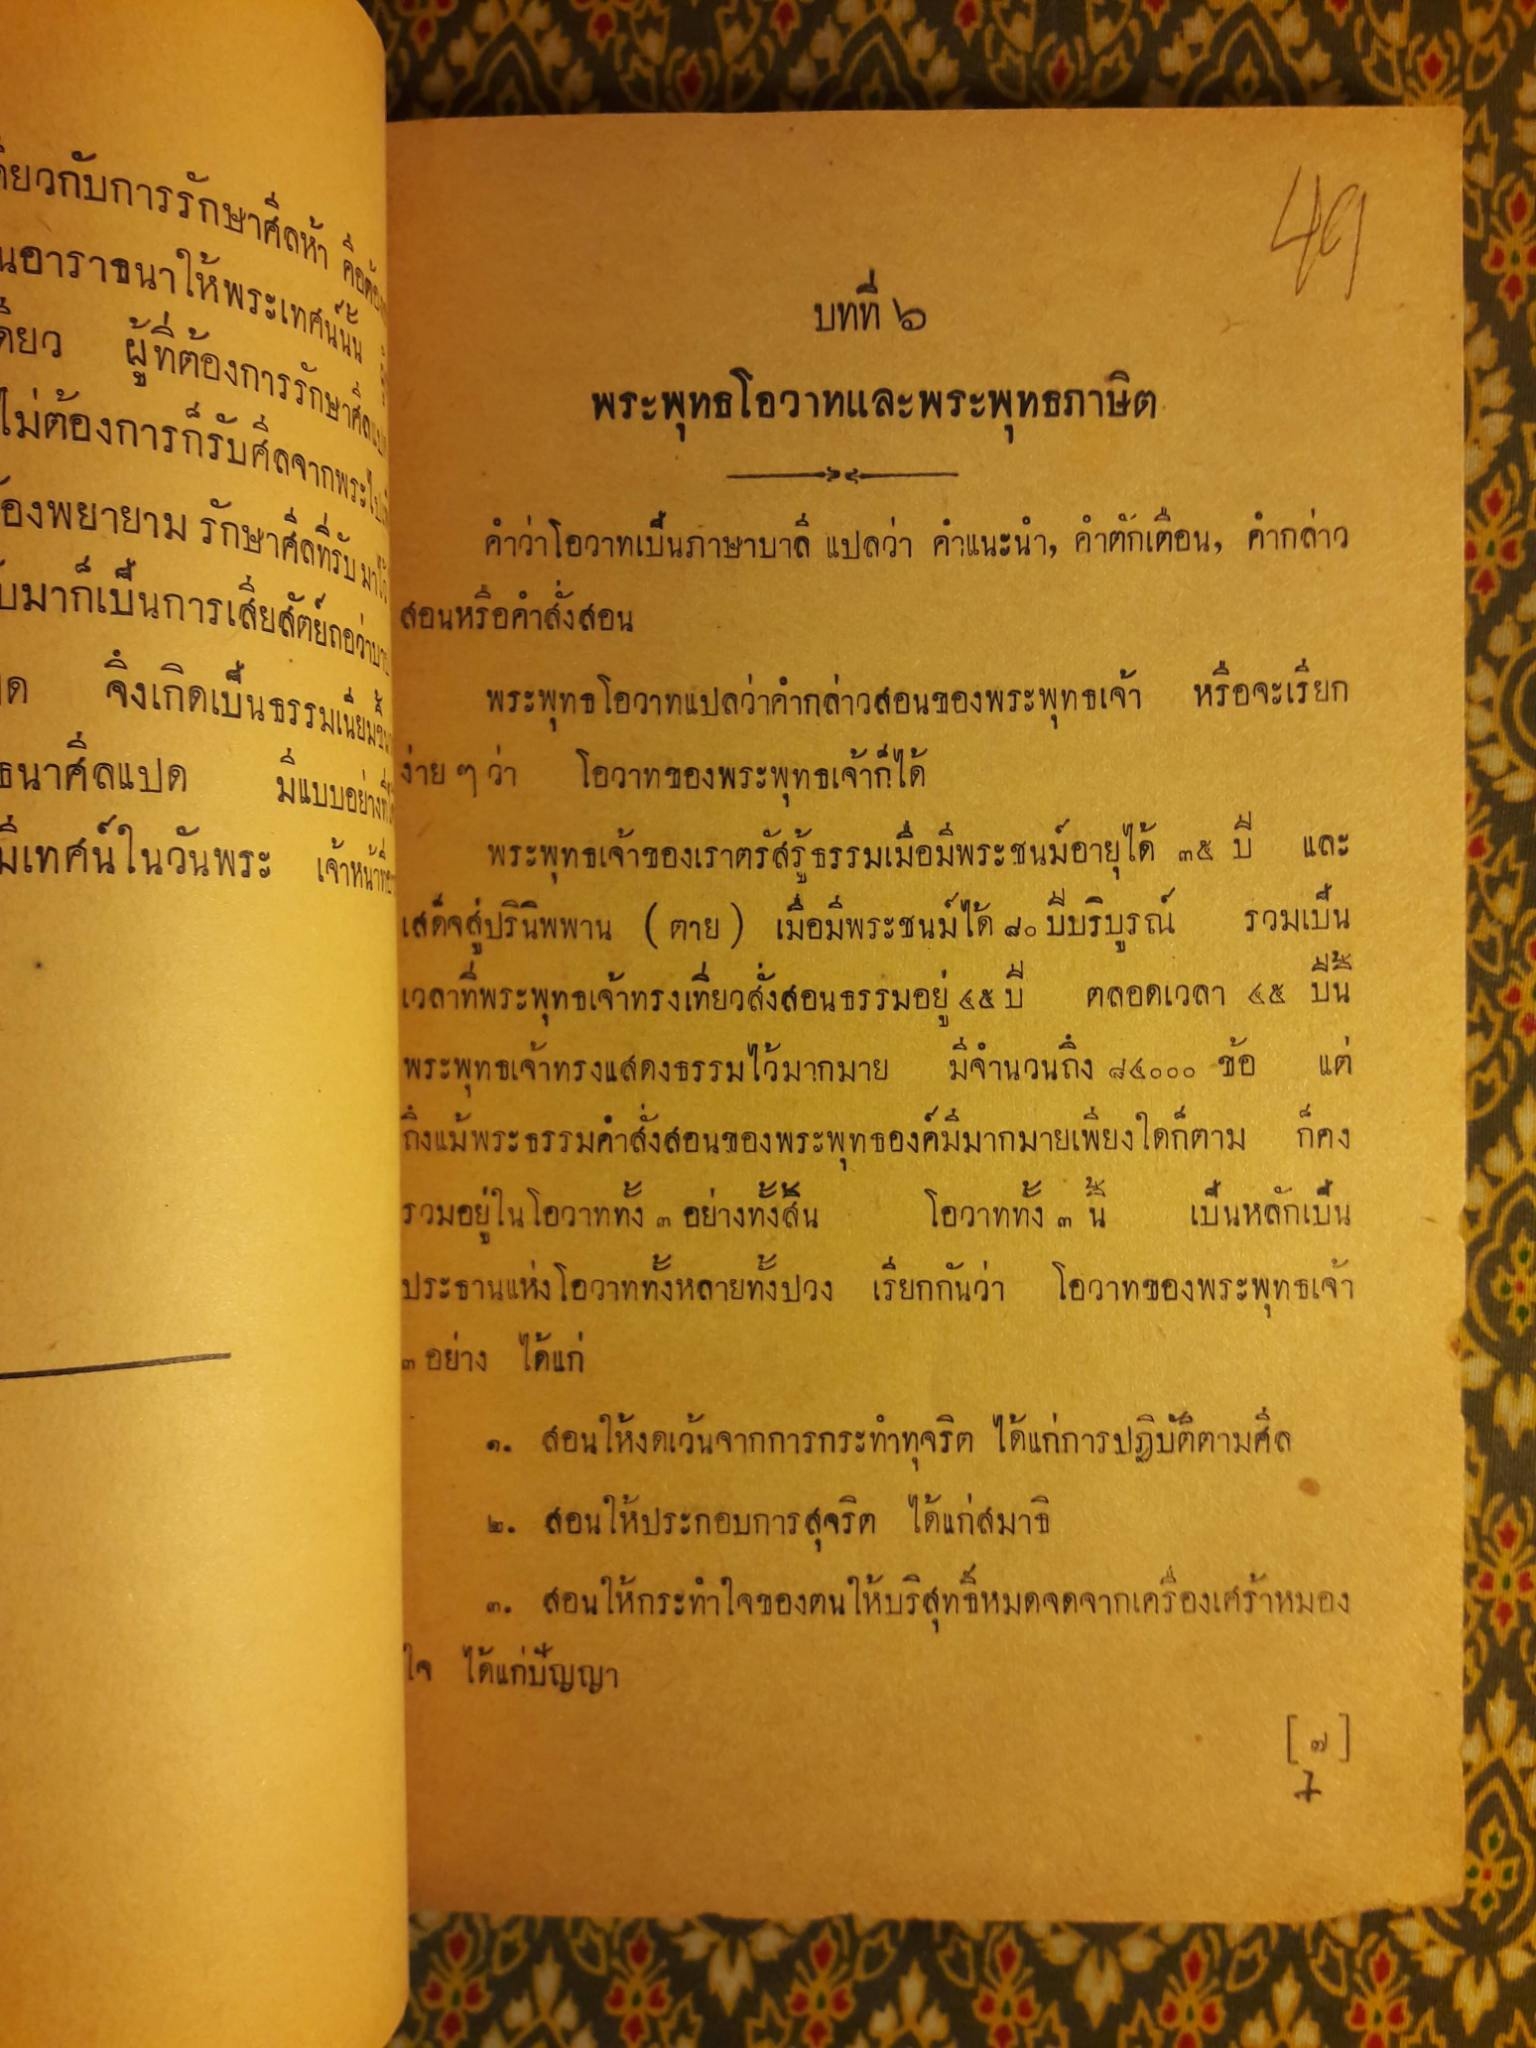 ดียวกับการรักษาศีลห้า คือต้อง
นอาราธนาให้พระเทศน์นั้น
ดียว ผู้ที่ต้องการรักษาศีล
ไม่ต้องการก็รับศีลจากพระไป
องพยายาม รักษาศีลที่รับมา
บมาก็เป็นการเสียสัตย์ถือว่า
ด จึงเกิดเป็นธรรมเนียมขึ้น
ธนาศีลแปด มีแบบอย่างที่
มีเทศน์ในวันพระ เจ้าหน้าที่
49
บทที่ ๖
พระพุทธโอวาทและพระพุทธภาษิต
คำว่าโอวาทเป็นภาษาบาลี แปลว่า คำแนะนำ, คำตักเตือน, คำกล่าว
สอนหรือคำสั่งสอน
พระพุทธโอวาทแปลว่าคำกล่าวสอนของพระพุทธเจ้า หรือจะเรียก
ง่าย ๆ ว่า โอวาทของพระพุทธเจ้าก็ได้
พระพุทธเจ้าของเราตรัสรู้ธรรมเมื่อมีพระชนม์อายุได้ ๓๕ ปี และ
เสด็จสู่ปรินิพพาน ( ตาย ) เมื่อมีพระชนม์ได้ ๘๐ ปีบริบูรณ์ รวมเป็น
เวลาที่พระพุทธเจ้าทรงเที่ยวสั่งสอนธรรมอยู่ ๔๕ ปี ตลอดเวลา ๔๕ ปีนี้
พระพุทธเจ้าทรงแสดงธรรมไว้มากมาย มีจำนวนถึง ๘๔๐๐๐ ข้อ แต่
ถึงแม้พระธรรมคำสั่งสอนของพระพุทธองค์มีมากมายเพียงใดก็ตาม ก็คง
รวมอยู่ในโอวาททั้ง ๓ อย่างทั้งสิ้น โอวาททั้ง ๓ นี้ เป็นหลักเป็น
ประธานแห่งโอวาททั้งหลายทั้งปวง เรียกกันว่า โอวาทของพระพุทธเจ้า
๓ อย่าง ได้แก่
๑. สอนให้งดเว้นจากการกระทำทุจริต ได้แก่การปฏิบัติตามศีล
๒. สอนให้ประกอบการสุจริต ได้แก่สมาธิ
๓. สอนให้กระทำใจของตนให้บริสุทธิ์หมดจดจากเครื่องเศร้าหมอง
ใจ ได้แก่ปัญญา
[ ๗ ]
7